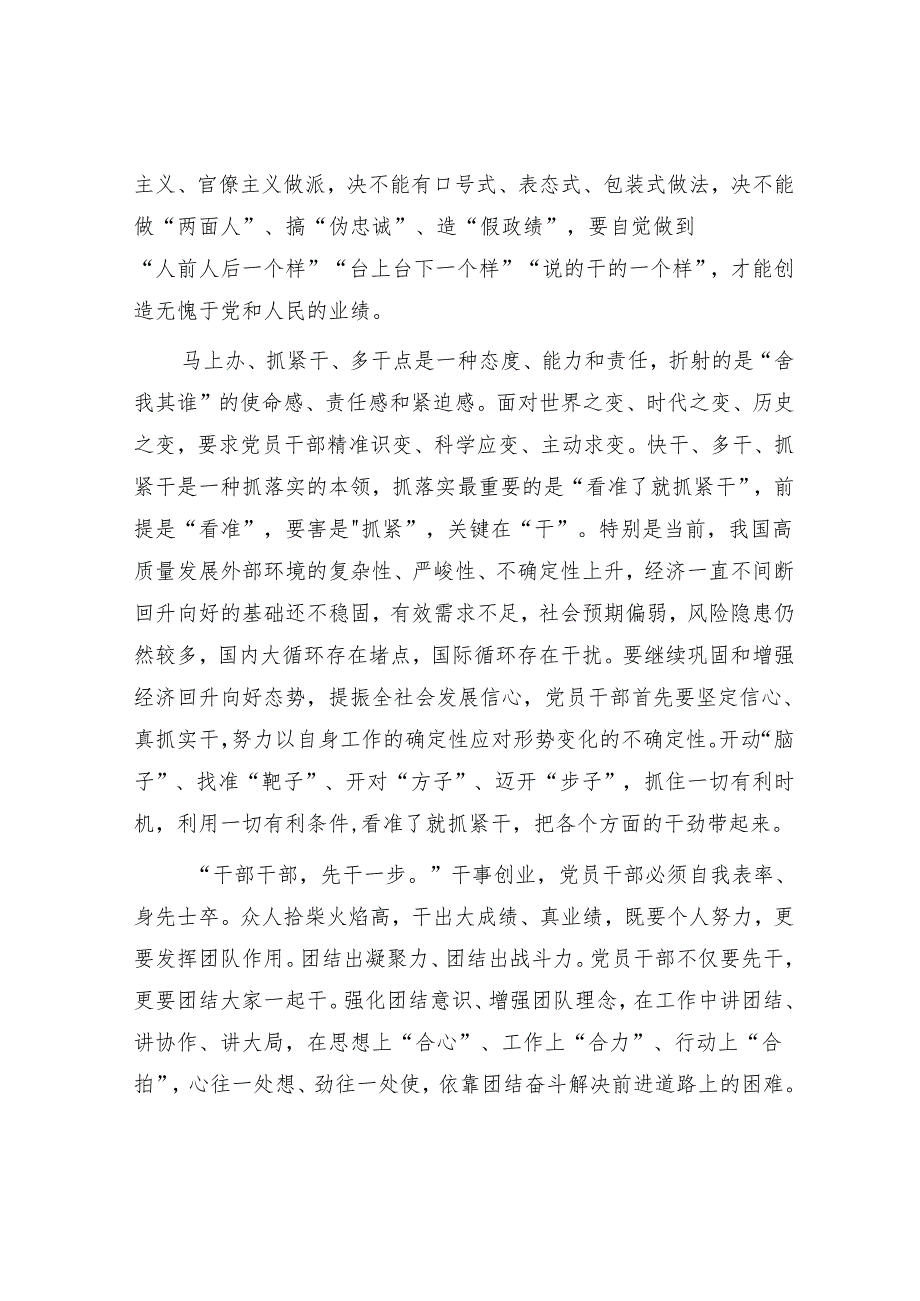 主义、官僚主义做派，决不能有口号式、表态式、包装式做法，决不能
做“两面人”、搞“伪忠诚”、造“假政绩”，要自觉做到
“人前人后一个样”“台上台下一个样”“说的干的一个样”，才能创
造无愧于党和人民的业绩。
马上办、抓紧干、多干点是一种态度、能力和责任，折射的是“舍
我其谁”的使命感、责任感和紧迫感。面对世界之变、时代之变、历史
之变，要求党员干部精准识变、科学应变、主动求变。快干、多干、抓
紧干是一种抓落实的本领，抓落实最重要的是“看准了就抓紧干”，前
提是“看准”，要害是"抓紧”，关键在“干”。特别是当前，我国高
质量发展外部环境的复杂性、严峻性、不确定性上升，经济一直不间断
回升向好的基础还不稳固，有效需求不足，社会预期偏弱，风险隐患仍
然较多，国内大循环存在堵点，国际循环存在干扰。要继续巩固和增强
经济回升向好态势，提振全社会发展信心，党员干部首先要坚定信心、
真抓实干,努力以自身工作的确定性应对形势变化的不确定性。开动“脑
子”、找准“靶子”、开对“方子”、迈开“步子”，抓住一切有利时
机，利用一切有利条件,看准了就抓紧干，把各个方面的干劲带起来。
“干部干部，先干一步。”干事创业，党员干部必须自我表率、
身先士卒。众人拾柴火焰高，干出大成绩、真业绩，既要个人努力，更
要发挥团队作用。团结出凝聚力、团结出战斗力。党员干部不仅要先干，
更要团结大家一起干。强化团结意识、增强团队理念，在工作中讲团结、
讲协作、讲大局，在思想上“合心”、工作上“合力”、行动上“合
拍”，心往一处想、劲往一处使，依靠团结奋斗解决前进道路上的困难。